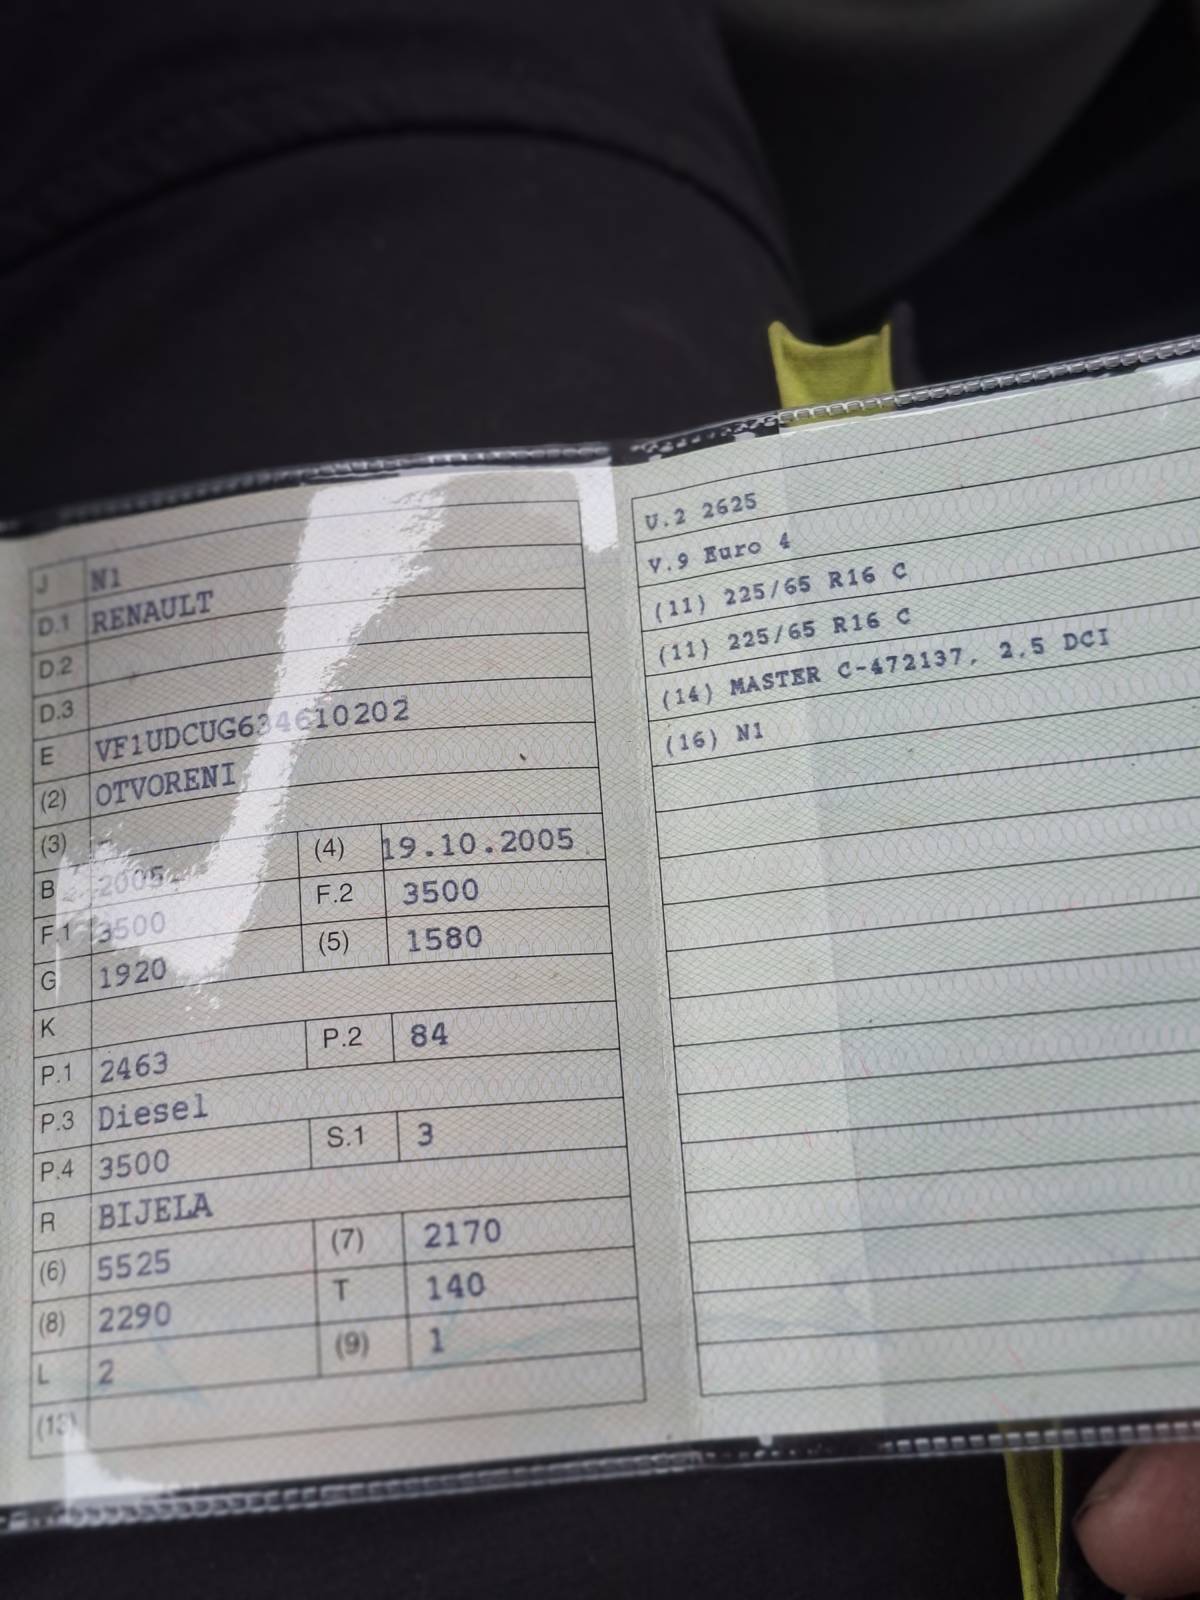 J N1
D.1 RENAULT
D.2
D.3
E VF1UDCUG634610202
(2) OTVORENI
(3) -
B 2005. (4) 19.10.2005
F.1 3500 F.2 3500
G 1920 (5) 1580
K
P.1 2463 P.2 84
P.3 Diesel
P.4 3500 S.1 3
R BIJELA
(6) 5525 (7) 2170
(8) 2290 T 140
L 2 (9) 1
(13)
U.2 2625
V.9 Euro 4
(11) 225/65 R16 C
(11) 225/65 R16 C
(14) MASTER C-472137, 2,5 DCI
(16) N1